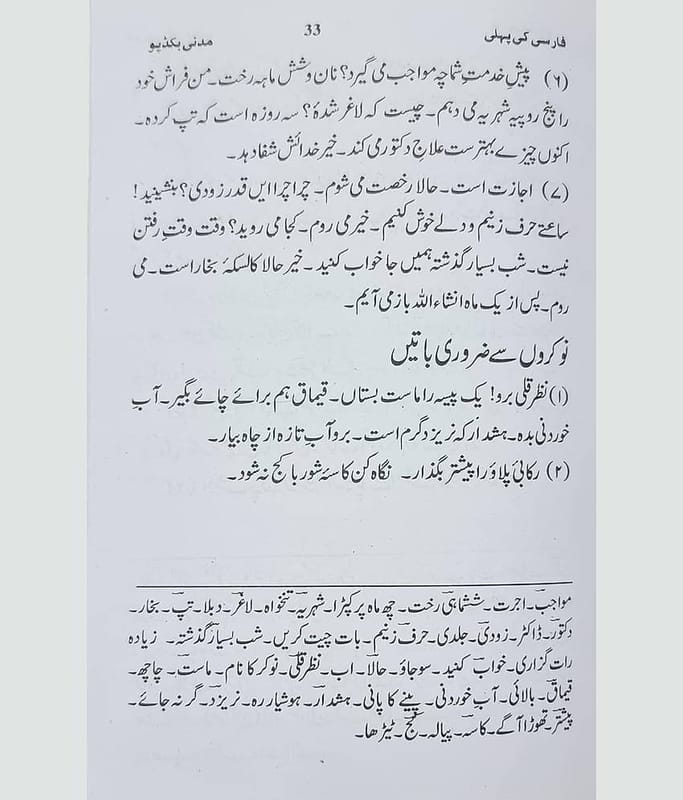 فارسی کی پہلی 33 مدنی بکڈپو
(۶) پیشِ خدمتِ شماچہ مواجب می گیرد؟ نان و شش ماہہ رخت۔ من فراش خود
را پنج روپیہ شہریہ می دہم۔ چیست کہ لاغر شدۂ؟ سہ روزہ است کہ تپ کردہ۔
اکنوں چیزے بہترست علاجِ دکتور می کند۔ خیر خدائش شفا دہد۔
(۷) اجازت است۔ حالا رخصت می شوم۔ چرا چرا ایں قدر زودی؟ بنشینید!
ساعتے حرف زنیم و دلے خوش کنیم۔ خیر می روم۔ کجا می روید؟ وقت وقتِ رفتن
نیست۔ شب بسیار گذشتہ ہمیں جا خواب کنید۔ خیر حالا کالسکۂ بخار است۔ می
روم۔ پس از یک ماہ انشاء اللہ باز می آیم۔
نوکروں سے ضروری باتیں
(۱) نظر قلی برو! یک پیسہ را ماست بستاں۔ قیماق ہم برائے چائے بگیر۔ آبِ
خوردنی بدہ۔ ہشدار کہ نریزد گرم است۔ برو آبِ تازہ از چاہ بیار۔
(۲) رکابیٔ پلاؤ را پیشتر بگذار۔ نگاہ کن کاسۂ شوربا کج نہ شود۔
مواجب۔ اجرت۔ ششماہی رخت۔ چھ ماہ پر کپڑا۔ شہریہ۔ تنخواہ۔ لاغر۔ دبلا۔ تپ۔ بخار۔
دکتور۔ ڈاکٹر۔ زودی۔ جلدی۔ حرف زنیم۔ بات چیت کریں۔ شب بسیار گذشتہ۔ زیادہ
رات گزاری۔ خواب کنید۔ سو جاؤ۔ حالا۔ اب۔ نظر قلی۔ نوکر کا نام۔ ماست۔ چاچھ۔
قیماق۔ بالائی۔ آب خوردنی۔ پینے کا پانی۔ ہشدار۔ ہوشیار رہ۔ نریزد۔ گر نہ جائے۔
پیشتر۔ تھوڑا آگے۔ کاسہ۔ پیالہ۔ کج۔ ٹیڑھا۔